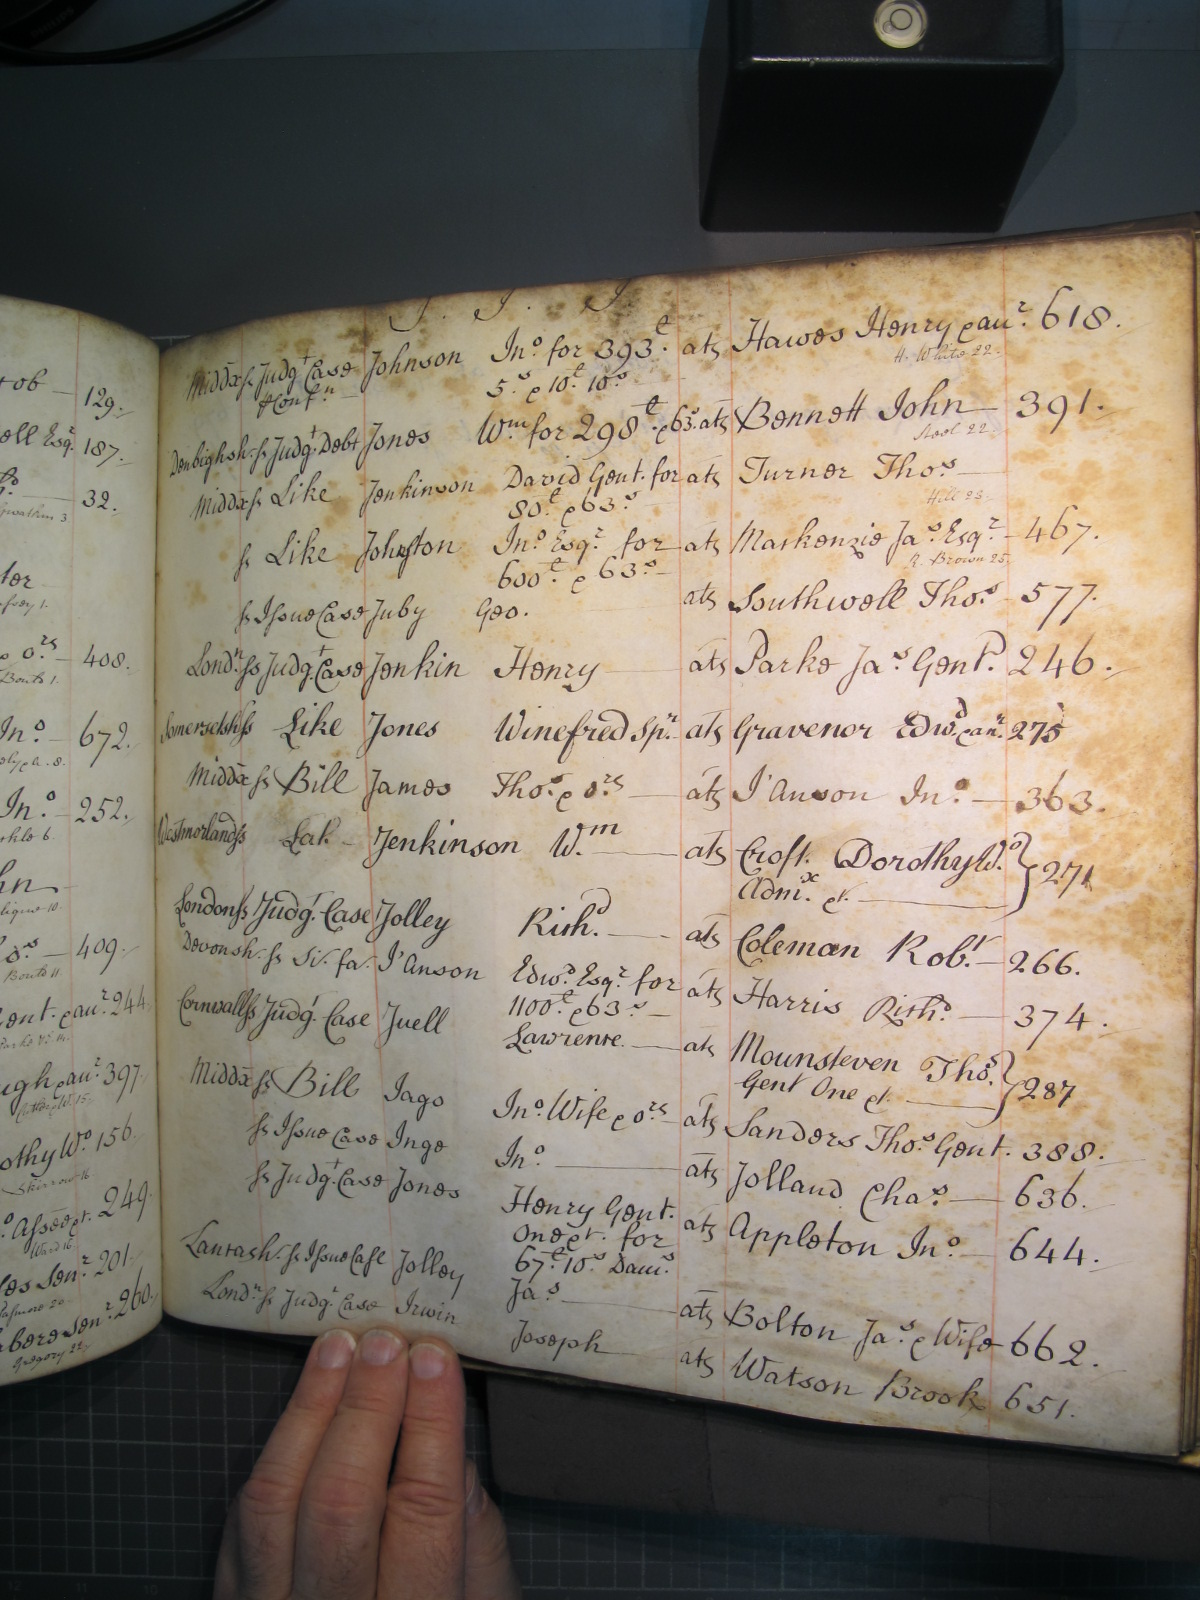 J. J. J.
Middx ss Judgt Case Johnson Jno. for 393£. ats Hawes Henry & anr. 618.
& Contn. 5.s & 10£. 10s. H. White 22.
Denbighsh. ss Judgt Debt Jones Wm. for 298£. & 63s. ats Bennett John 391.
22.
Middx ss Like Jenkinson David Gent. for ats Turner Thos.
80£. & 63s. Hill 23.
ss Like Johnston Jno. Esqr. for ats Mackenzie Jas. Esqr. 467.
600£ & 63s. R. Brown 25.
ss Issue Case Juby Geo. ats Southwell Thos. 577.
Londn. ss Judgt Case Jenkin Henry ats Parke Jas. Gent. 246.
Somersetsh ss Like Jones Winefred Spr. ats Gravenor Edwd. & anr. 275
Middx ss Bill James Thos. & ors. ats I'Anson Jno. 363.
Westmorland ss Lat. Jenkinson Wm. ats Croft Dorothy Wo. 271
Admx. &c.
London ss Judgt. Case Jolley Richd. ats Coleman Robt. 266.
Devonsh. ss Sci. fa. I'Anson Edwd. Esqr. for ats Harris Richd. 374.
1100£. & 63s.
Cornwall ss Judgt. Case Juell Lawrence ats Mounsteven Thos. 287
Gent One &c.
Middx ss Bill Iago Jno. Wife & ors. ats Sanders Thos. Gent. 388.
ss Issue Case Inge Jno. ats Jolland Chas. 636.
ss Judgt. Case Jones Henry Gent. ats Appleton Jno. 644.
One &c. for
67£. 10s. Dams.
Lancash. ss Issue Case Jolley Jas. ats Bolton Jas. & Wife 662.
Londn. ss Judgt. Case Irwin Joseph ats Watson Brook 651.
129.
Esqr. 187.
32.
3
1.
& ors. 408.
Bouts 1.
Jno. 672.
8.
Jno. 252.
6.
10.
409.
Bouts 11.
& anr. 244
& anr. 397
15.
Wo. 156.
Skirrow 16
249.
Ward 16
Senr. 201.
20.
Senr. 260.
Gregory 22.